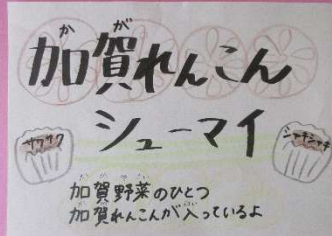 かが
加賀れんこん
シューマイ
サクサク
シャキシャキ
加賀野菜のひとつ
加賀れんこんが入っているよ